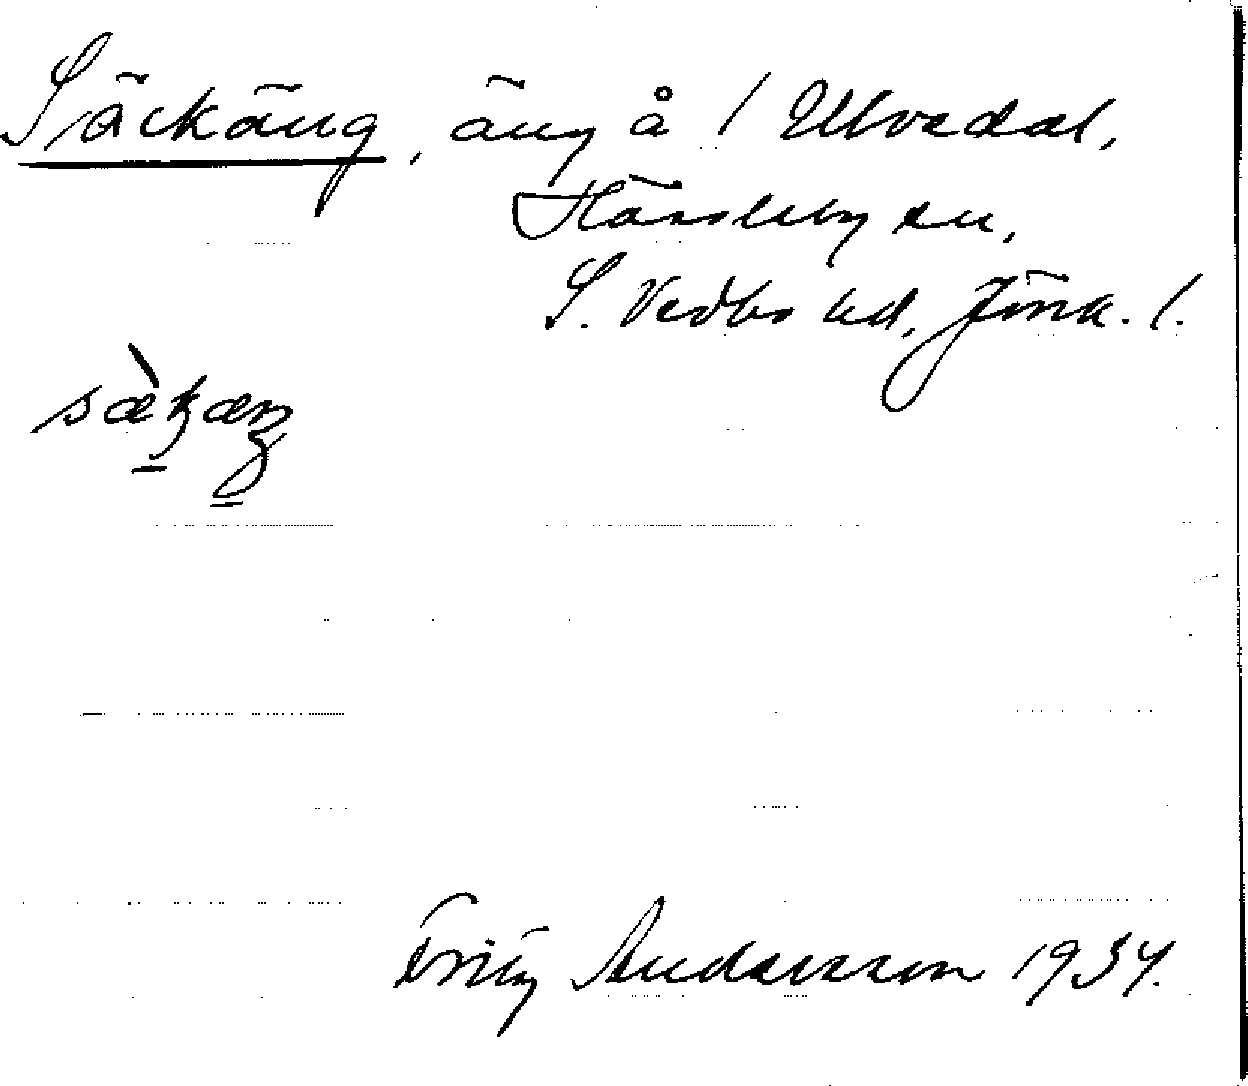 Säckäng, äng å / Ulvedal,
Hässleby sn,
S. Vedbo hd, Jönk. l.
sæ̀kæŋ
Fritz Andersson 1934.